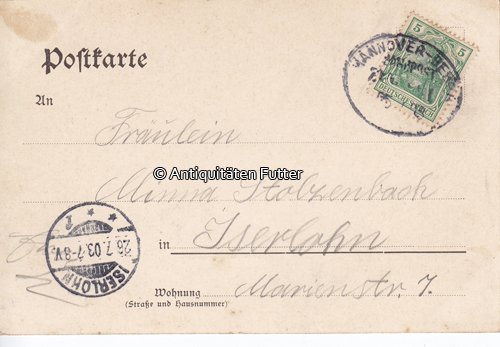 Postkarte
5 5
DEUTSCHES REICH
HANNOVER-
BAHNPOST
An
Fräulein
© Antiquitäten Futter
Minna Stolzenbach
in Iserlohn
26.7.03.7-8V.
ISERLOHN
Wohnung
(Straße und Hausnummer)
Marienstr. 7.